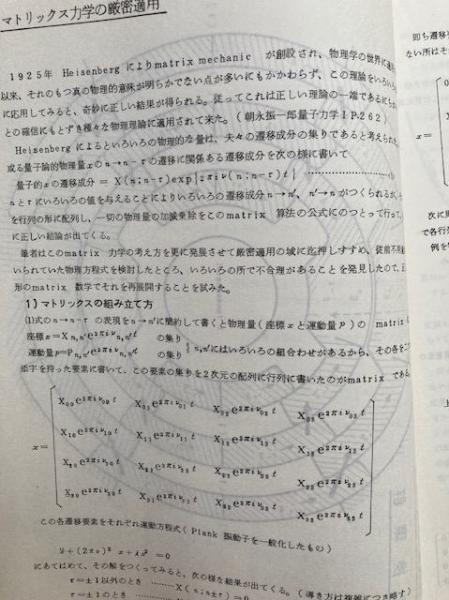 マトリックス力学の厳密適用
1925年 Heisenberg によりmatrix mechanic が創設され、物理学の世界に
以来、それのもつ真の物理的意味が明らかでない点が多いにもかかわらず、この理論をいろいろ
に応用してみると、奇妙に正しい結果が得られる。従ってこれは正しい理論の一端であるに
との確信にもとずき種々な物理理論に適用されて来た。(朝永振一郎量子力学ⅠP.262)
Heisenbergによるといろいろの物理的な量は、夫々の遷移成分の集りであると考えられ
或る量子論的物理量xのn→n−τの遷移に関係ある遷移成分を次の様に書いて
量子的xの遷移成分 = X(n;n−τ)exp[2πiν(n;n−τ)t]
nとτにいろいろの値を与えることによりいろいろの遷移成分n→n′、n′→nがつくられるが、
を行列の形に配列し、一切の物理量の加減乗除をこのmatrix 算法の公式にのっとって行って、
に正しい結論が出てくる。
筆者はこのmatrix 力学の考え方を更に発展させて厳密適用の域に迄押しすすめ、従前不用意
いられていた物理方程式を検討したところ、いろいろの所で不合理があることを発見したので、正
形のmatrix 数学でそれを再展開することを試みた。
1) マトリックスの組み立て方
(1)式のn→n−τ の表現をn→n′に簡約して書くと物理量(座標xと運動量P)の matrix は
座標x=Xn,n′e2πiνn,n′t の集り
運動量p=Pn,n′e2πiνn,n′t の集り n,n′にはいろいろの組合わせがあるから、その各を二
添字を持った要素に書いて、この要素の集りを2次元の配列に行列に書いたのがmatrix である
X00e2πiν00t X01e2πiν01t X02e2πiν02t X03e2πiν03t
X10e2πiν10t X11e2πiν11t X12e2πiν12t X13e2πiν13t
x=
X20e2πiν20t X21e2πiν21t X22e2πiν22t X23e2πiν23t
X30e2πiν30t X31e2πiν31t X32e2πiν32t X33e2πiν33t
この各遷移要素をそれぞれ運動方程式(Plank 振動子を一般化したもの)
+(2πν)² x+λx² =0
にあてはめて、その解をつくってみると、次の様な結果が出てくる。(導き方は複雑につき略す)
τ=±1以外のとき ……X(n;n±τ)=0
τ=±1のとき
即ち遷移
ない所はそ
x=
次に
で各行
例を